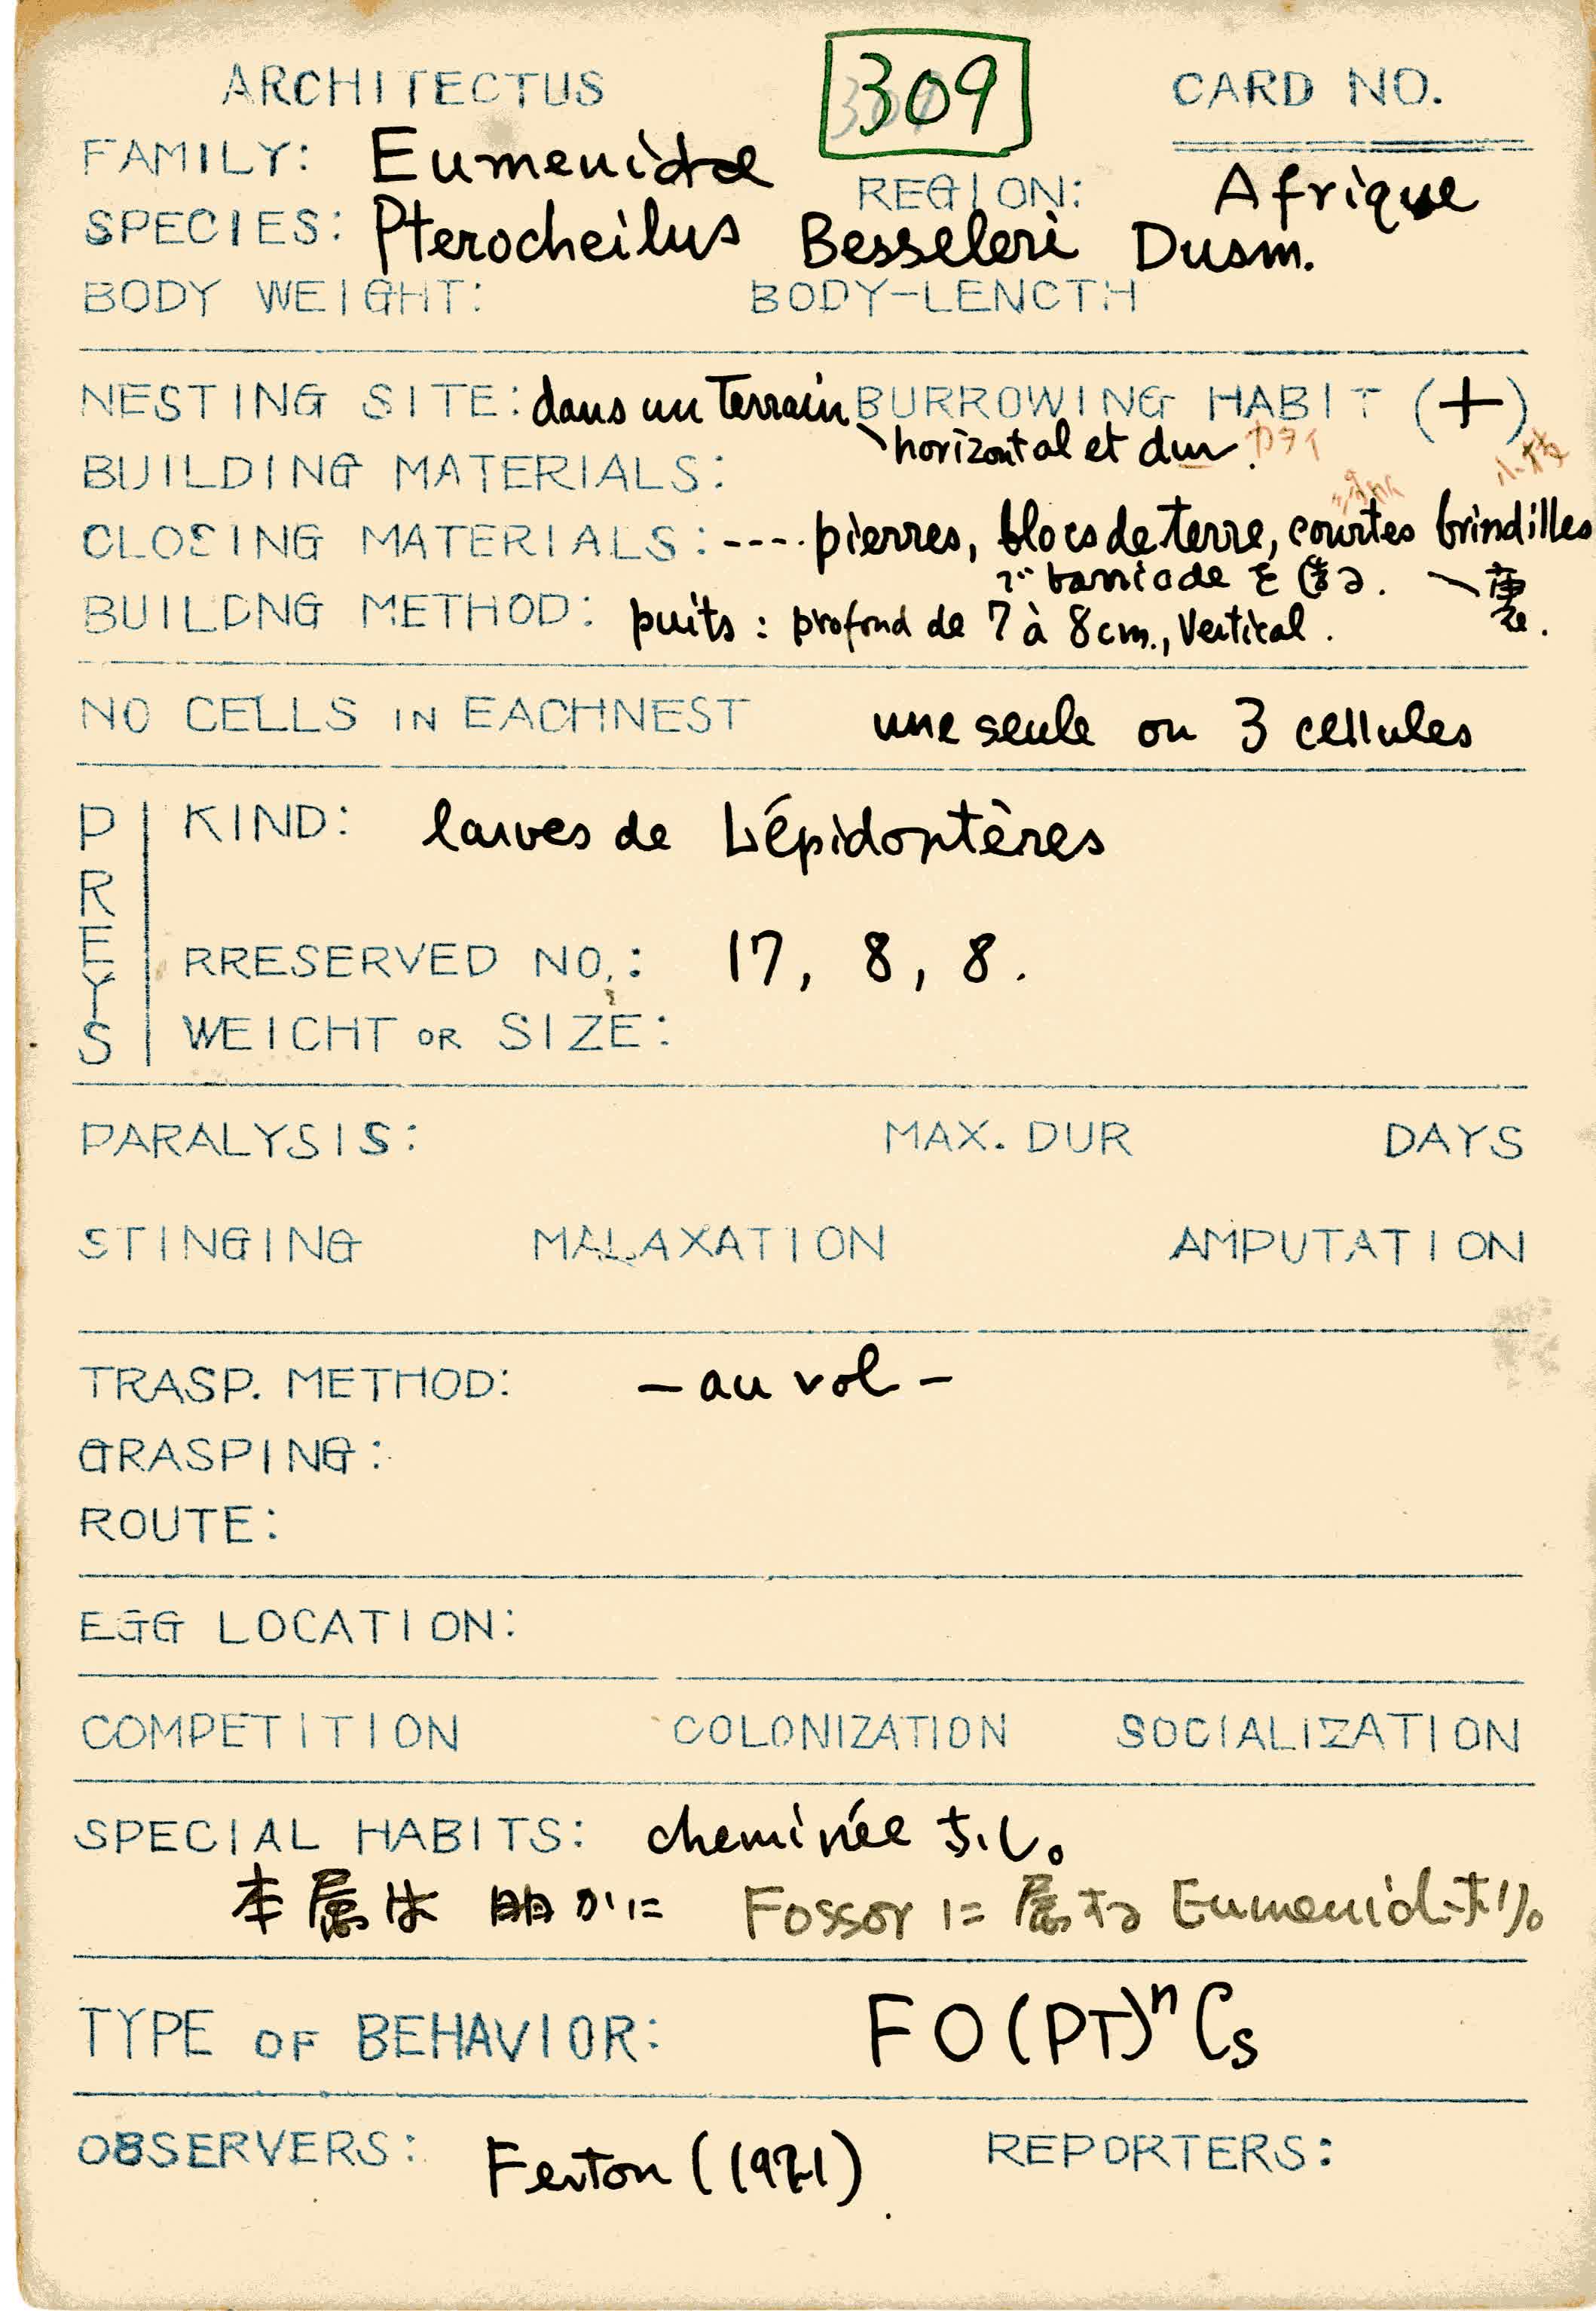 ARCHITECTUS 309 CARD NO.
FAMILY: Eumenidae REGION: Afrique
SPECIES: Pterocheilus Besseleri Dusm.
BODY WEIGHT: BODY-LENCTH
NESTING SITE: dans un Terrain BURROWING HABIT (+)
horizontal et dur. カタイ
BUILDING MATERIALS: 小枝
CLOSING MATERIALS: ---- pierres, blocs de terre, courtes brindilles
で barricade を作る.
BUILDNG METHOD: puits : profond de 7 à 8 cm., Vertical.
NO CELLS IN EACHNEST une seule ou 3 cellules
PREYS
KIND: larves de Lépidoptères
RRESERVED NO.: 17, 8, 8.
WEICHT OR SIZE:
PARALYSIS: MAX. DUR DAYS
STINGING MALAXATION AMPUTATION
TRASP. METHOD: – au vol –
GRASPING:
ROUTE:
EGG LOCATION:
COMPETITION COLONIZATION SOCIALIZATION
SPECIAL HABITS: cheminée ナシ。
本属は 明かに Fossor に 属する Eumenid ナリ。
TYPE OF BEHAVIOR: FO(PT)ⁿCs
OBSERVERS: Ferton (1921) REPORTERS: